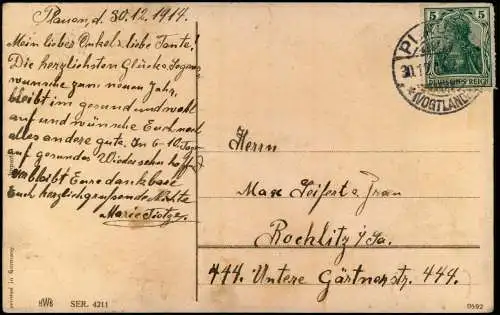 Plauen, d. 30.12.1914.
Mein lieber Onkel & liebe Tante!
Die herzlichsten Glücks & Segens
wünsche zum neuen Jahr,
bleibt im gesund und wohl
auf und wünsche Euch noch
alles andere gute. In 6-10 Tagen
auf gesundes Wiedersehn hofft
verbleibt Eure dankbare
Euch herzlich grüssende Nichte
Marie
5 5
DEUTSCHES REICH
(VOGTLAND)
Herrn
Max Seifert & Frau
Rochlitz i/Sa.
444. Untere Gärtnerstr. 444.
Printed in Germany
HWB SER. 4211
0592